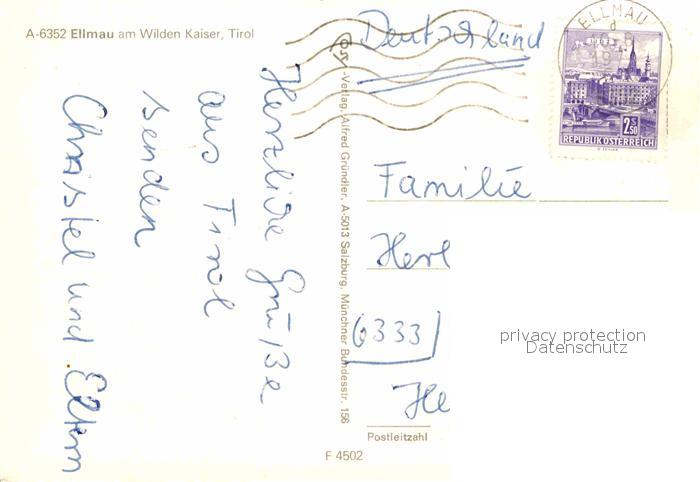 A-6352 Ellmau am Wilden Kaiser, Tirol
Herzliche Grüße
aus Tirol
senden
Christel und Eltern
-Verlag, Alfred Gründler, A-5013 Salzburg, Münchner Bundesstr. 156
F 4502
ELLMAU
d
2S50
REPUBLIK ÖSTERREICH
Deutschland
Familie
6333
He
Postleitzahl
privacy protection
Datenschutz